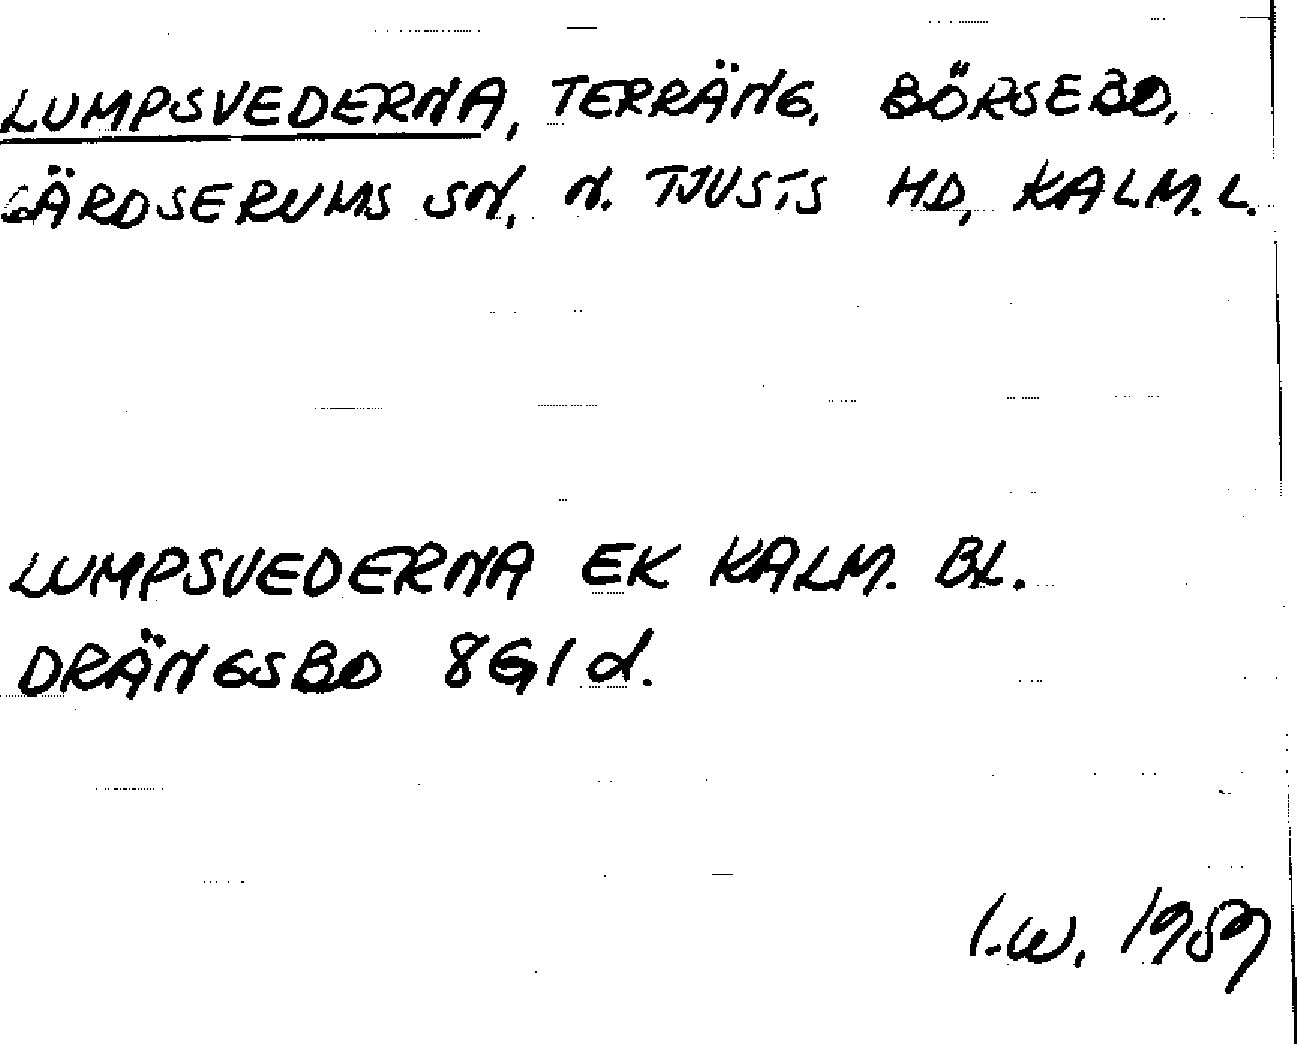 LUMPSVEDERNA, TERRÄNG, BÖRSEBO,
GÄRDSERUMS SN, N. TJUSTS HD, KALM. L.
LUMPSVEDERNA EK KALM. BL.
DRÄNGSBO 8G1d.
I.W. 1989